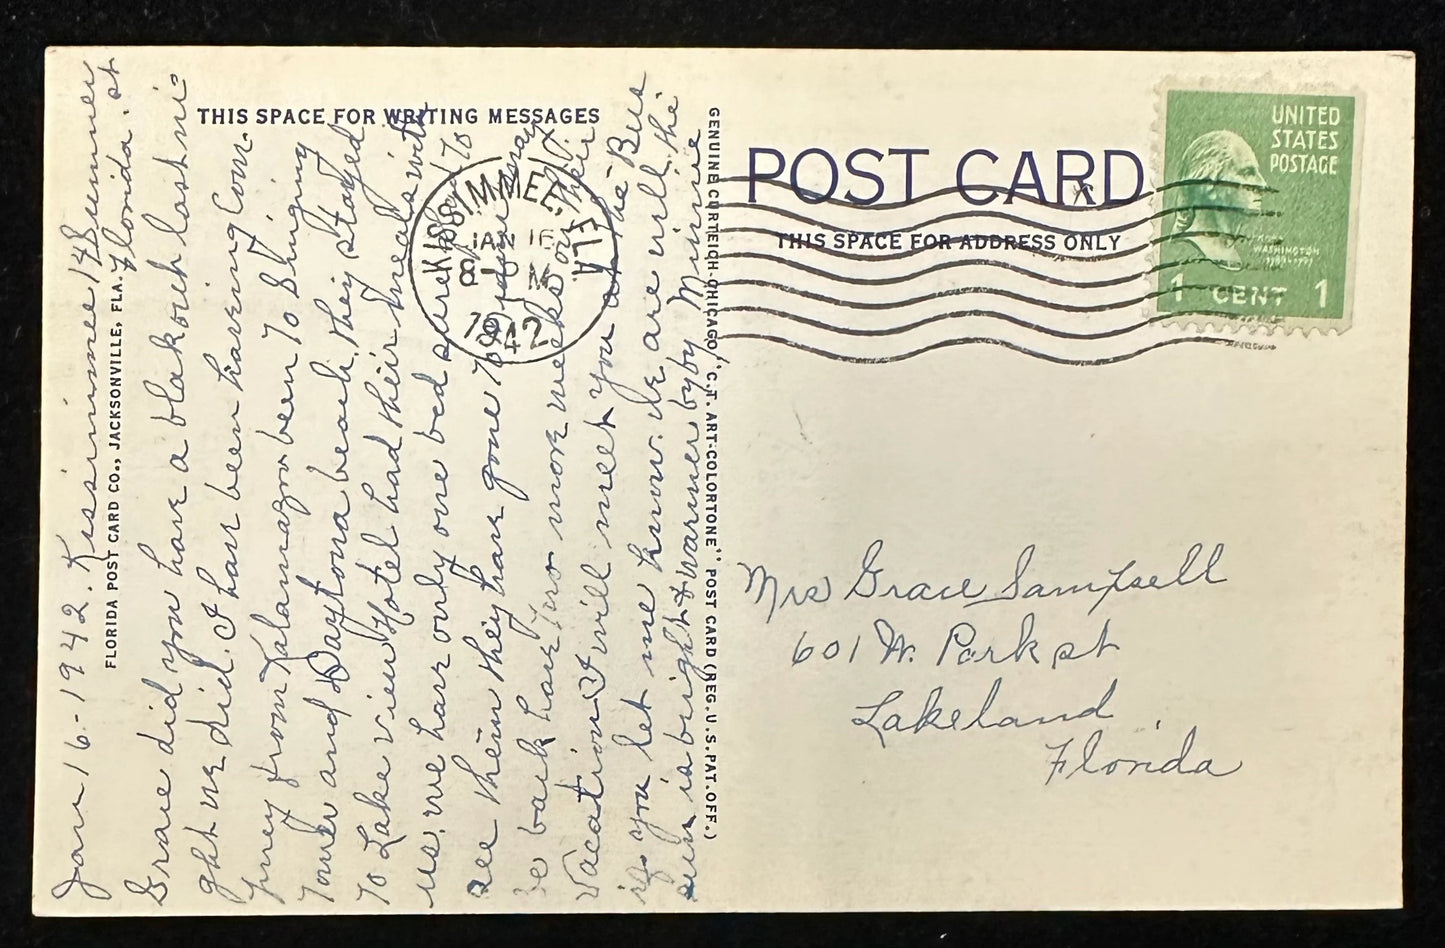 THIS SPACE FOR WRITING MESSAGES
Jan 16-1942. Kissimmee 14 Summer
Florida. st
Grace did you have a blakouch last ni-
ght we did. I have been haveing Com-
pney from Kalamazoo been To Singing
Tower and Daytona beach, they stayed
To Lake view Hotel had their meals with
us. we have only one bed sure glad To
see them they have gone To
be back have Two more weeks on their
Vacation I will meet you at the Bus
if you let me know. we are well the
sun is bright & warmer by by Minnie
FLORIDA POST CARD CO., JACKSONVILLE, FLA.
GENUINE CURTEICH-CHICAGO, "C.T. ART-COLORTONE" POST CARD (REG. U.S. PAT. OFF.)
KISSIMMEE, FLA.
JAN 16
8- M
1942
POST CARD
THIS SPACE FOR ADDRESS ONLY
UNITED
STATES
POSTAGE
WASHINGTON
1 CENT 1
Mrs Grace Sampsell
601 W. Park st
Lakeland,
Florida